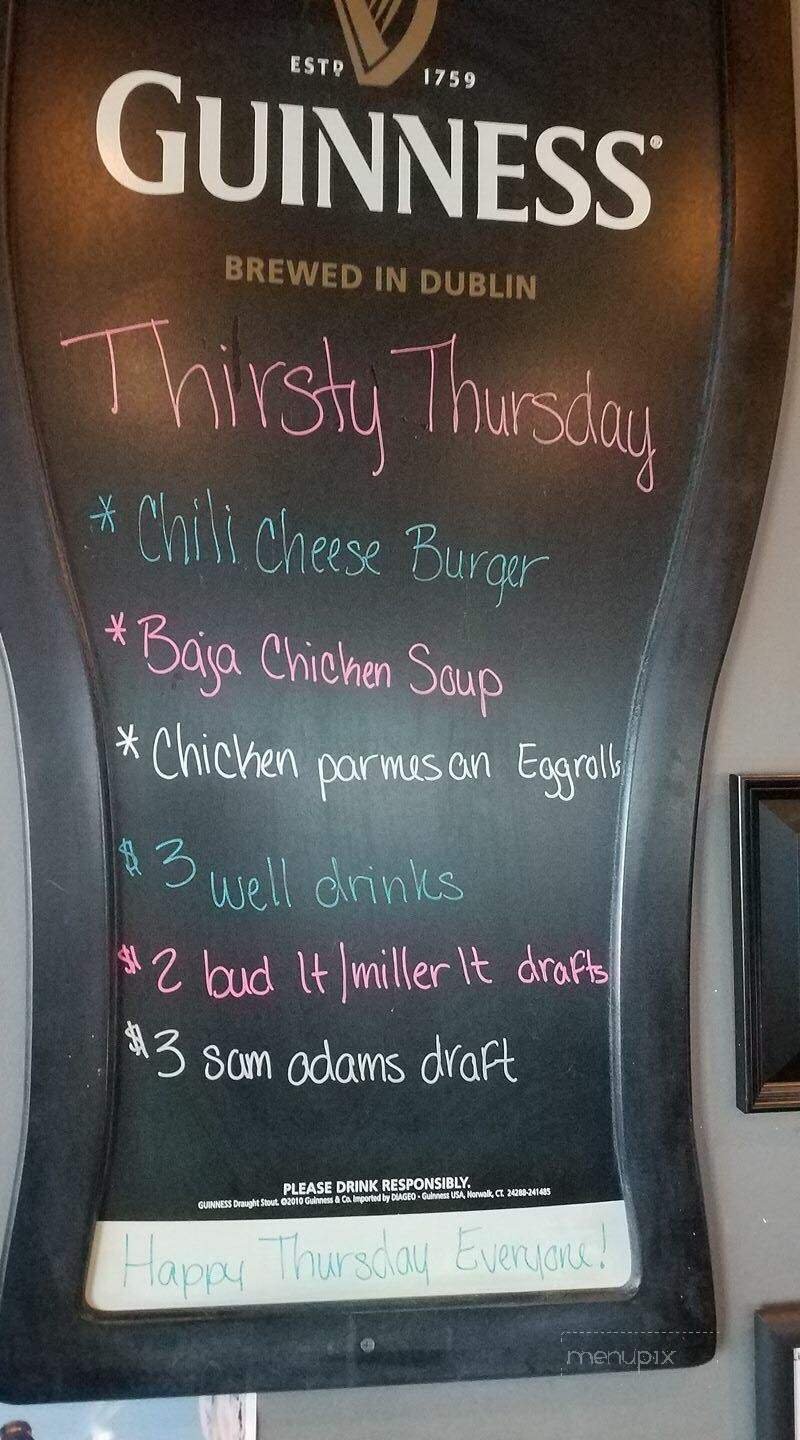 ESTD 1759
GUINNESS®
BREWED IN DUBLIN
Thirsty Thursday
* Chili Cheese Burger
* Baja Chicken Soup
* Chicken parmesan Eggrolls
$3 well drinks
$2 bud lt/miller lt drafts
$3 sam adams draft
PLEASE DRINK RESPONSIBLY.
GUINNESS Draught Stout. ©2010 Guinness & Co. Imported by DIAGEO - Guinness USA, Norwalk, CT. 24288-241485
Happy Thursday Everyone!
menupix